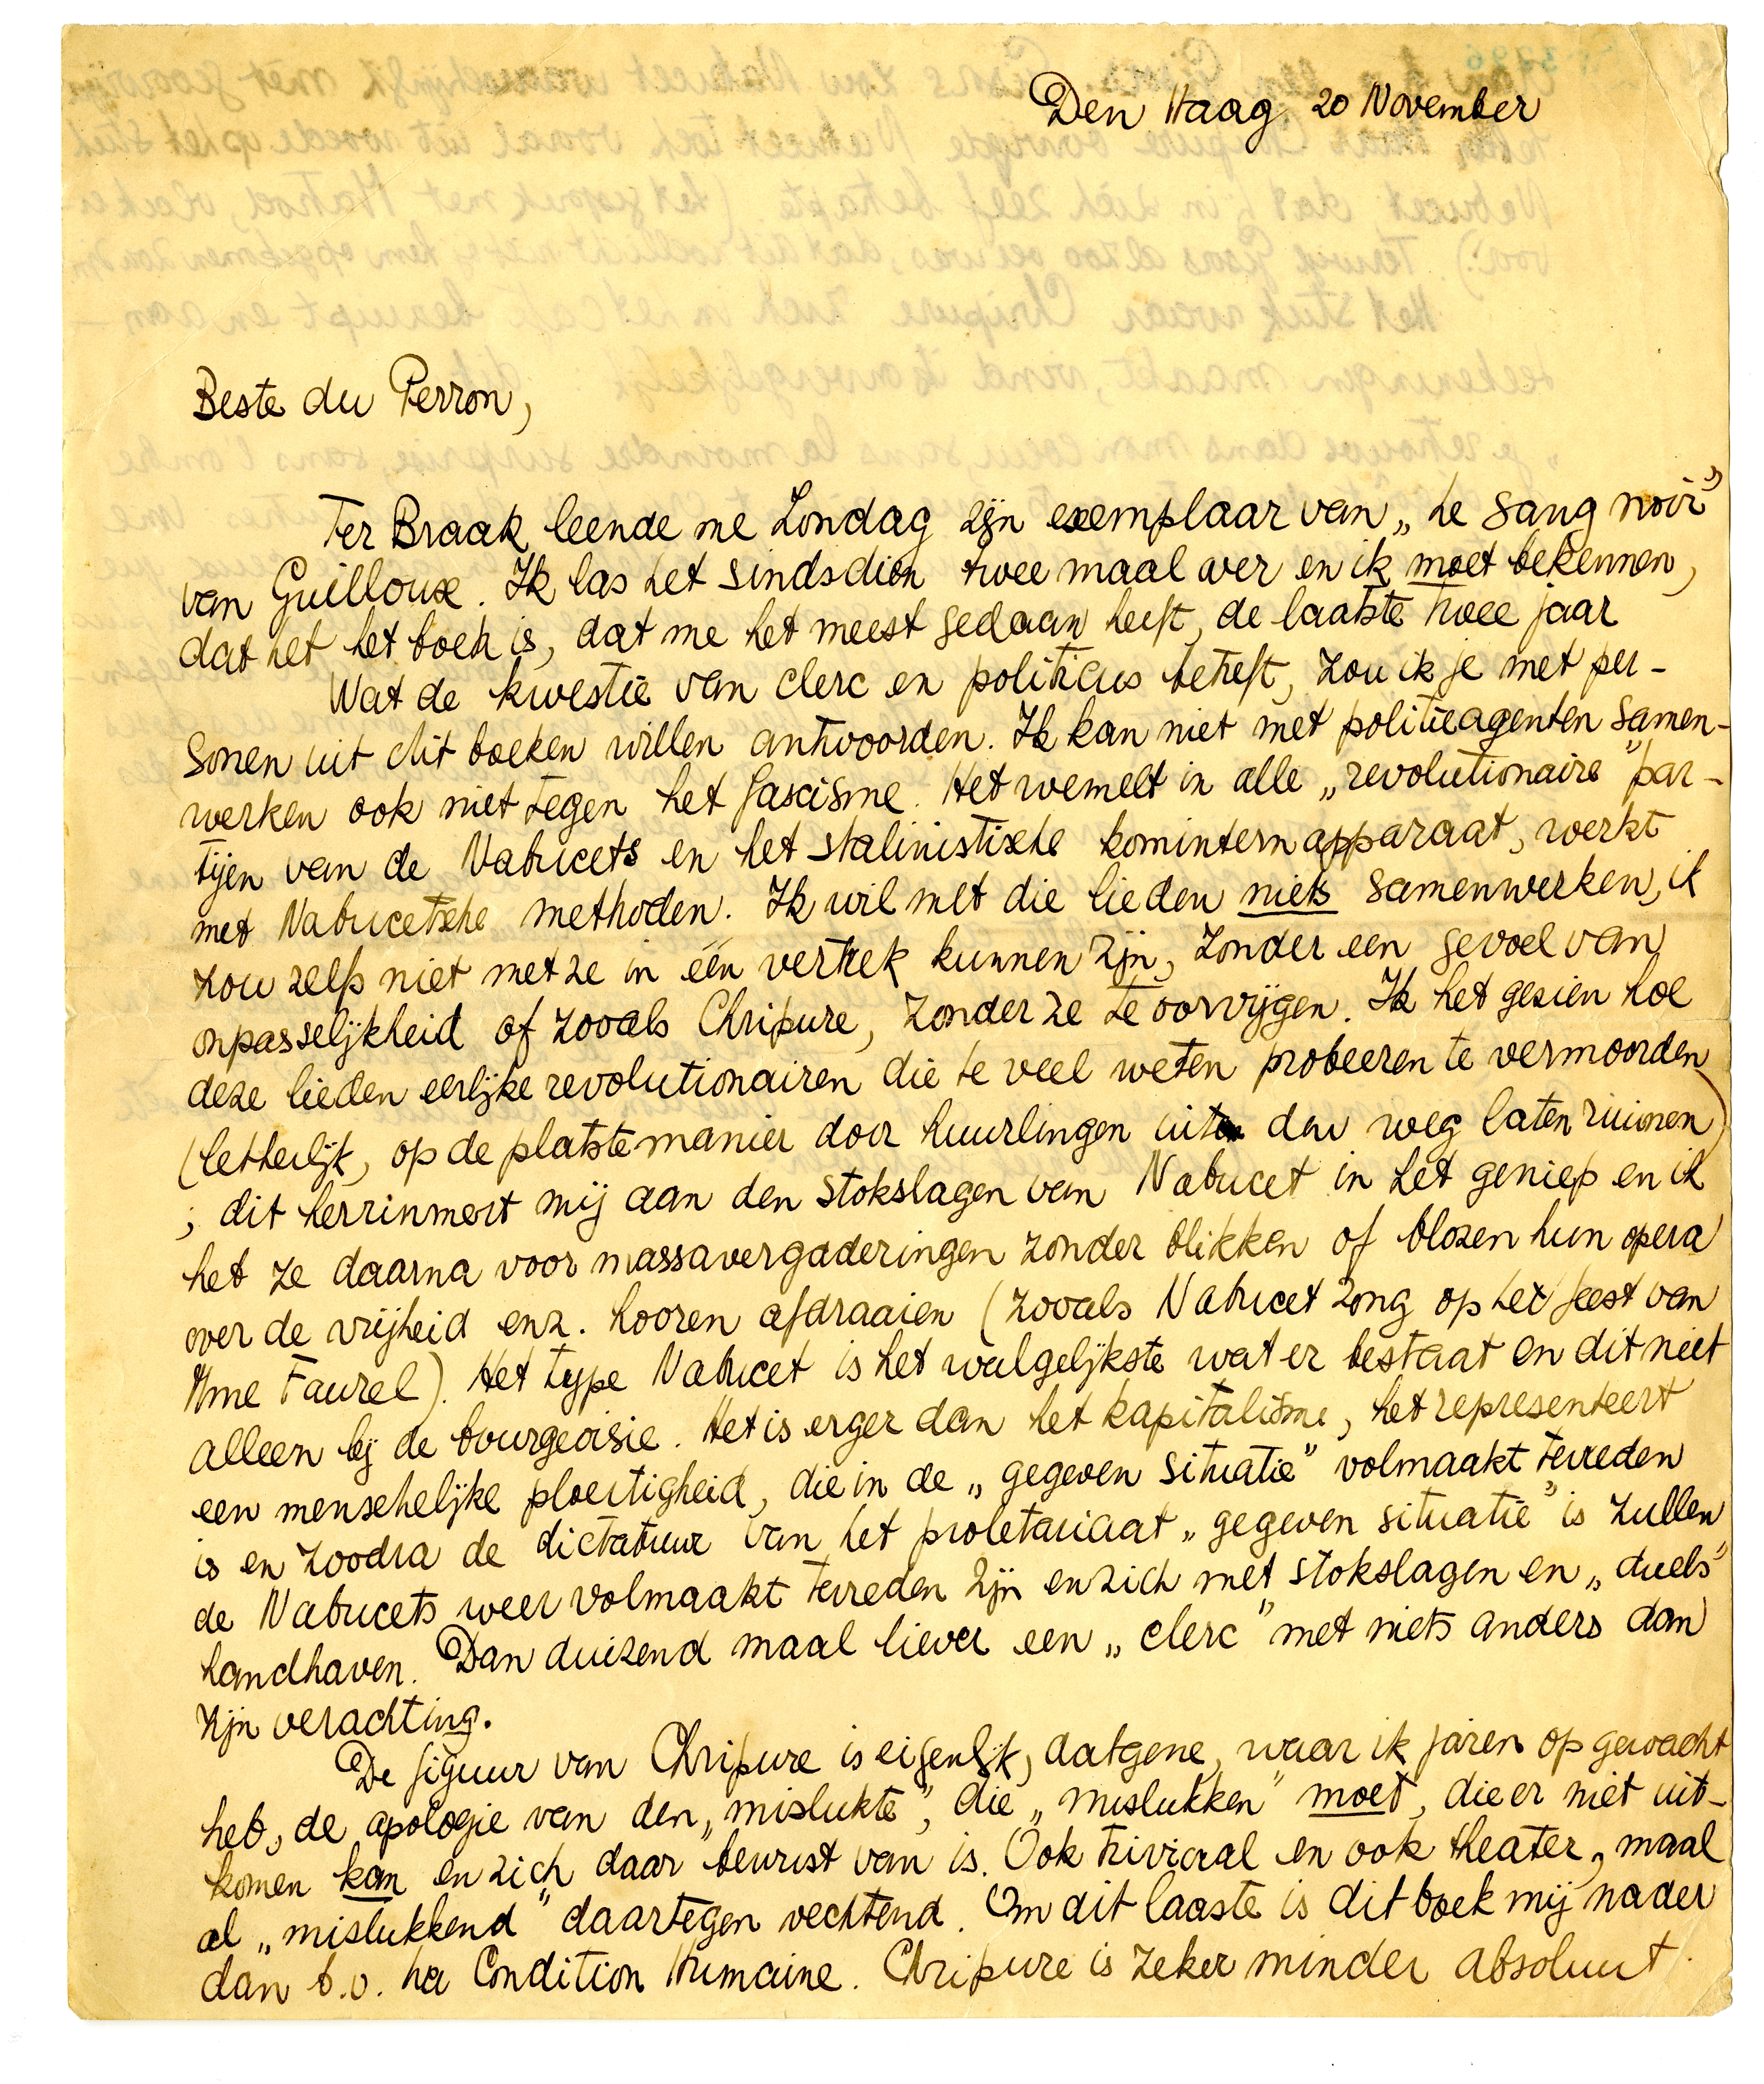 Den Haag 20 November
Beste du Perron,
Ter Braak leende me Zondag zijn exemplaar van „Le Sang noir”
van Guilloux. Ik las het sindsdien twee maal over en ik moet bekennen,
dat het het boek is, dat me het meest gedaan heeft, de laatste twee jaar
Wat de kwestie van clerc en politicus betreft, zou ik je met per-
sonen uit dit boeken willen antwoorden. Ik kan niet met politieagenten samen-
werken ook niet tegen het fascisme. Het wemelt in alle „revolutionaire” par-
tijen van de Nabucets en het stalinistische kominternapparaat, werkt
met Nabucetsche methoden. Ik wil met die lieden niets samenwerken, ik
zou zelfs niet met ze in één vertrek kunnen zijn, zonder een gevoel van
onpasselijkheid of zooals Chripure, zonder ze te oorvijgen. Ik heb gezien hoe
deze lieden eerlijke revolutionairen die te veel weten probeeren te vermoorden
(letterlijk, op de platste manier door huurlingen uit den weg laten ruimen)
; dit herrinnert mij aan den stokslagen van Nabucet in het geniep en ik
heb ze daarna voor massavergaderingen zonder blikken of blozen hun opera
over de vrijheid enz. hooren afdraaien (zooals Nabucet zong op het feest van
Mme Faurel). Het type Nabucet is het walgelijkste wat er bestaat en dit niet
alleen bij de bourgeoisie. Het is erger dan het kapitalisme, het representeert
een menschelijke ploertigheid, die in de „gegeven situatie” volmaakt tevreden
is en zoodra de dictatuur van het proletariaat „gegeven situatie” is zullen
de Nabucets weer volmaakt tevreden zijn en zich met stokslagen en „duels”
handhaven. Dan duizend maal liever een „clerc” met niets anders dan
zijn verachting.
De figuur van Chripure is eigenlijk, datgene, waar ik jaren op gewacht
heb, de apologie van den „mislukte”, die „mislukken” moet, die er niet uit-
komen kan en zich daar bewust van is. Ook triviaal en ook theater, maal
al „mislukkend” daartegen vechtend. Om dit laaste is dit boek mij nader
dan b.v. La Condition Humaine. Chripure is zeker minder absoluut